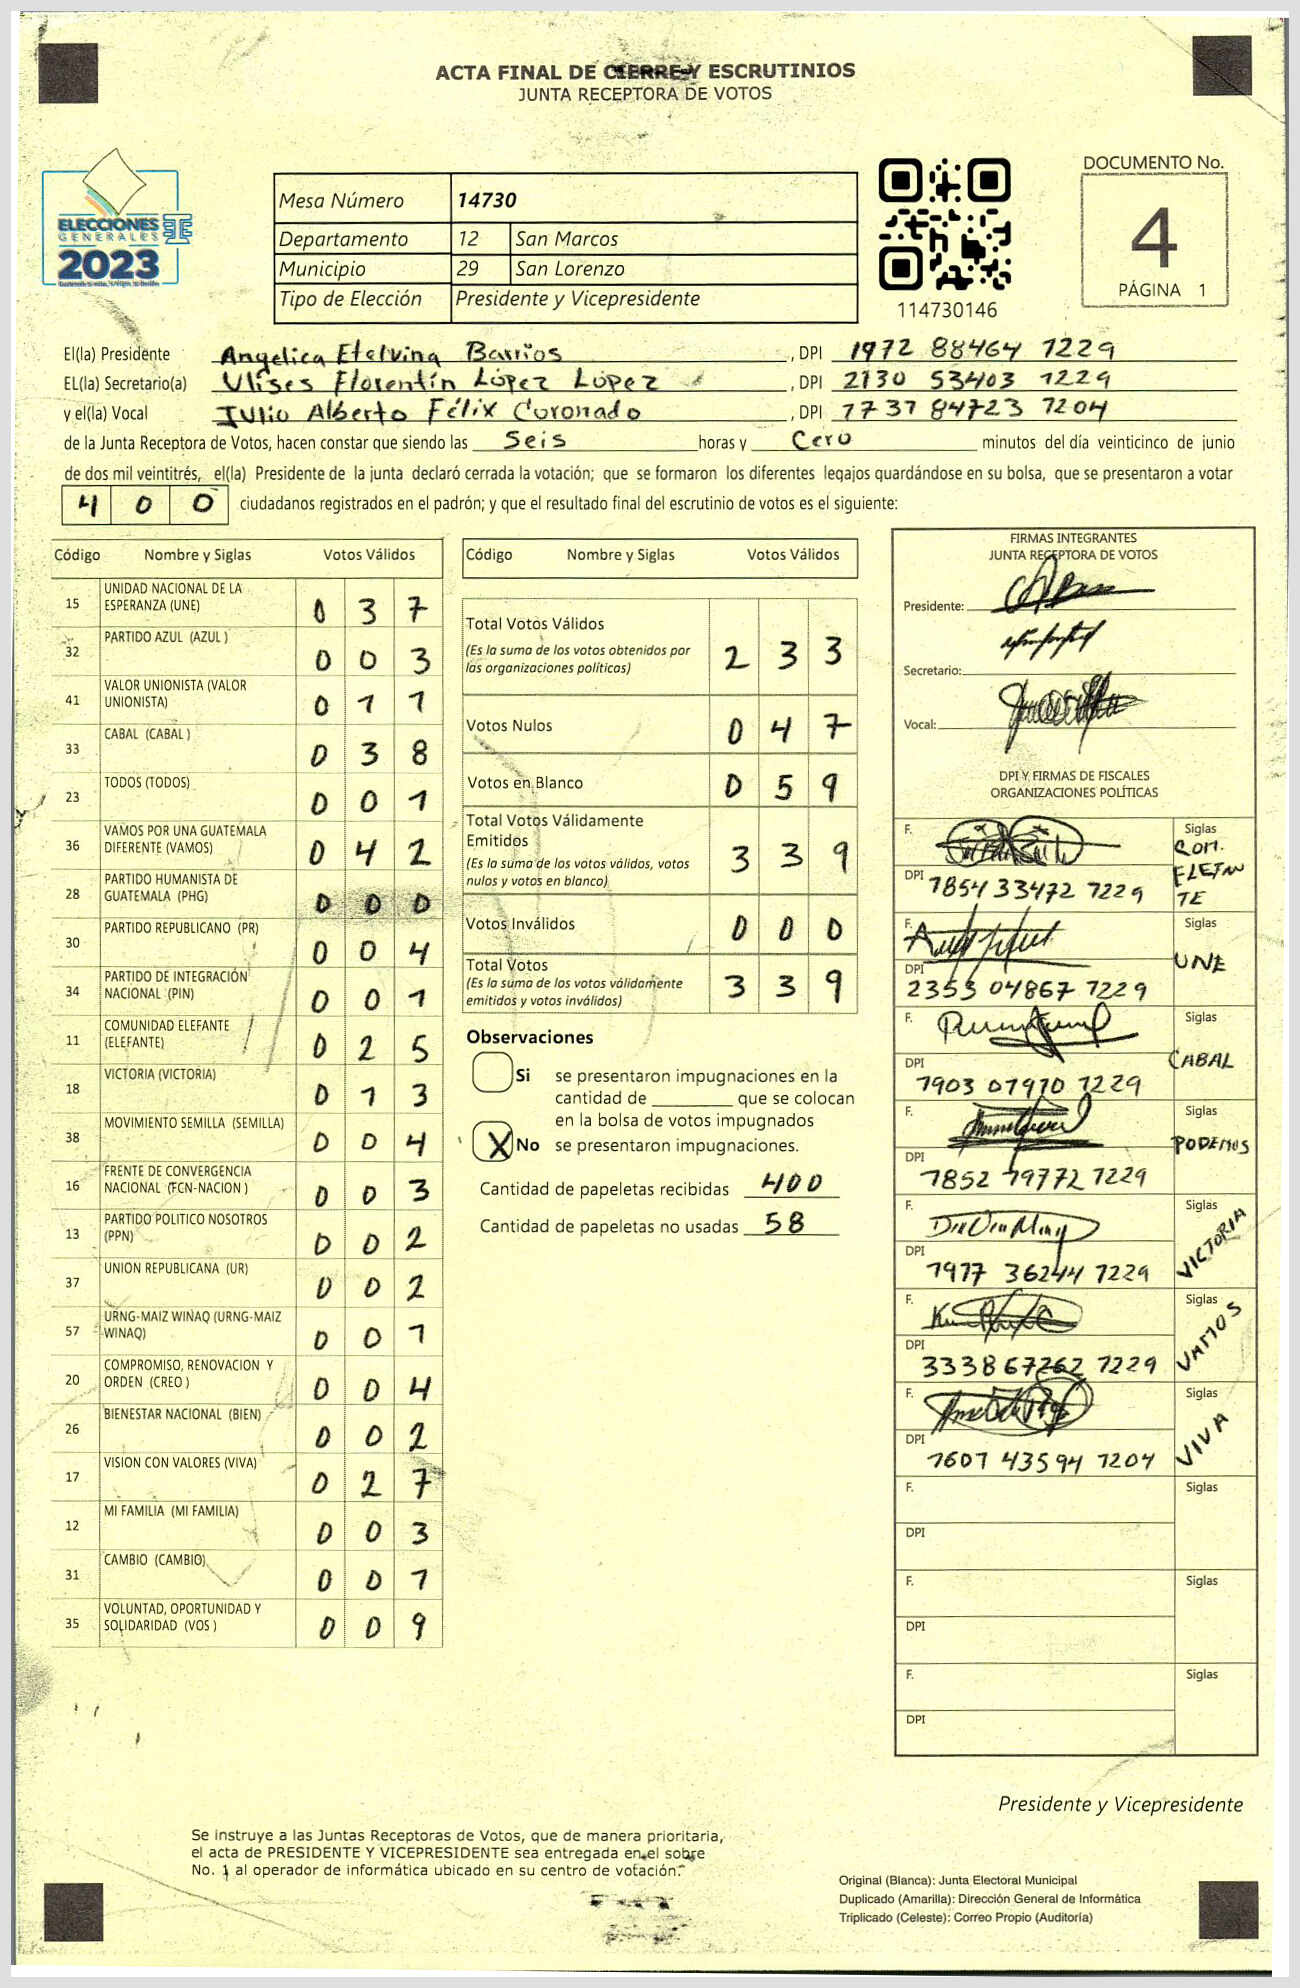 ACTA FINAL DE CIERRE Y ESCRUTINIOS
JUNTA RECEPTORA DE VOTOS
ELECCIONES
GENERALES
2023
Mesa Número 14730
Departamento 12 San Marcos
Municipio 29 San Lorenzo
Tipo de Elección Presidente y Vicepresidente
114730146
DOCUMENTO No.
4
PÁGINA 1
El(la) Presidente Angelica Etelvina Barrios , DPI 1972 88464 1229
EL(la) Secretario(a) Ulises Florentín López López , DPI 2130 53403 1229
y el(la) Vocal Julio Alberto Félix Coronado , DPI 1737 84723 1204
de la Junta Receptora de Votos, hacen constar que siendo las Seis horas y Cero minutos del día veinticinco de junio
de dos mil veintitrés, el(la) Presidente de la junta declaró cerrada la votación; que se formaron los diferentes legajos quardándose en su bolsa, que se presentaron a votar
4 0 0 ciudadanos registrados en el padrón; y que el resultado final del escrutinio de votos es el siguiente:
Código Nombre y Siglas Votos Válidos
15 UNIDAD NACIONAL DE LA ESPERANZA (UNE) 0 3 7
32 PARTIDO AZUL (AZUL ) 0 0 3
41 VALOR UNIONISTA (VALOR UNIONISTA) 0 1 1
33 CABAL (CABAL ) 0 3 8
23 TODOS (TODOS) 0 0 1
36 VAMOS POR UNA GUATEMALA DIFERENTE (VAMOS) 0 4 2
28 PARTIDO HUMANISTA DE GUATEMALA (PHG) 0 0 0
30 PARTIDO REPUBLICANO (PR) 0 0 4
34 PARTIDO DE INTEGRACIÓN NACIONAL (PIN) 0 0 1
11 COMUNIDAD ELEFANTE (ELEFANTE) 0 2 5
18 VICTORIA (VICTORIA) 0 1 3
38 MOVIMIENTO SEMILLA (SEMILLA) 0 0 4
16 FRENTE DE CONVERGENCIA NACIONAL (FCN-NACION ) 0 0 3
13 PARTIDO POLITICO NOSOTROS (PPN) 0 0 2
37 UNION REPUBLICANA (UR) 0 0 2
57 URNG-MAIZ WINAQ (URNG-MAIZ WINAQ) 0 0 1
20 COMPROMISO, RENOVACION Y ORDEN (CREO ) 0 0 4
26 BIENESTAR NACIONAL (BIEN) 0 0 2
17 VISION CON VALORES (VIVA) 0 2 7
12 MI FAMILIA (MI FAMILIA) 0 0 3
31 CAMBIO (CAMBIO) 0 0 1
35 VOLUNTAD, OPORTUNIDAD Y SOLIDARIDAD (VOS ) 0 0 9
Código Nombre y Siglas Votos Válidos
Total Votos Válidos 2 3 3
(Es la suma de los votos obtenidos por
las organizaciones políticas)
Votos Nulos 0 4 7
Votos en Blanco 0 5 9
Total Votos Válidamente
Emitidos 3 3 9
(Es la suma de los votos válidos, votos
nulos y votos en blanco)
Votos Inválidos 0 0 0
Total Votos 3 3 9
(Es la suma de los votos válidamente
emitidos y votos inválidos)
Observaciones
Si se presentaron impugnaciones en la
cantidad de que se colocan
en la bolsa de votos impugnados
X No se presentaron impugnaciones.
Cantidad de papeletas recibidas 400
Cantidad de papeletas no usadas 58
FIRMAS INTEGRANTES
JUNTA RECEPTORA DE VOTOS
Presidente:
Secretario:
Vocal:
DPI Y FIRMAS DE FISCALES
ORGANIZACIONES POLÍTICAS
F. Siglas
COM. ELEFANTE
DPI 1854 33472 1229
F. Siglas
UNE
DPI 2353 04867 1229
F. Siglas
CABAL
DPI 1903 01910 1229
F. Siglas
PODEMOS
DPI 1852 19772 1229
F. Siglas
VICTORIA
DPI 1977 36244 1229
F. Siglas
VAMOS
DPI 3338 67262 1229
F. Siglas
VIVA
DPI 1601 43594 1204
F. Siglas
DPI
F. Siglas
DPI
F. Siglas
DPI
Presidente y Vicepresidente
Se instruye a las Juntas Receptoras de Votos, que de manera prioritaria,
el acta de PRESIDENTE Y VICEPRESIDENTE sea entregada en el sobre
No. 1 al operador de informática ubicado en su centro de votación.
Original (Blanca): Junta Electoral Municipal
Duplicado (Amarilla): Dirección General de Informática
Triplicado (Celeste): Correo Propio (Auditoría)